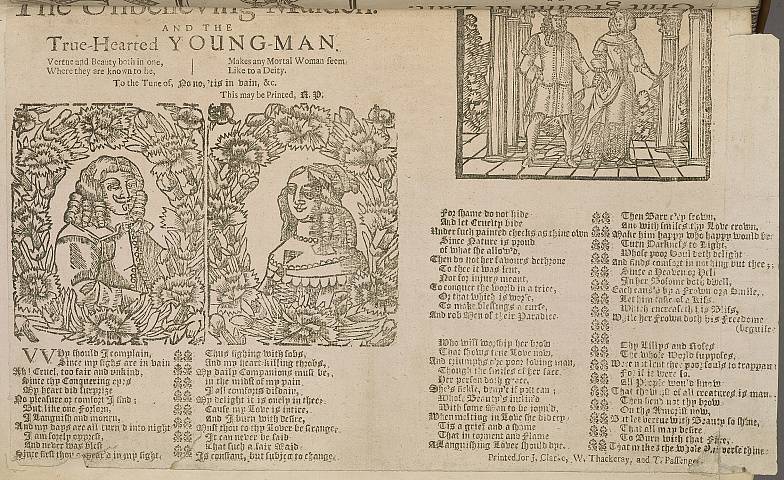 The Unbelieving Maiden.
AND THE
True-Hearted YOUNG-MAN.
Vertue and Beauty both in one,
Where they are known to be,
Makes any Mortal Woman seem
Like to a Deity.
To the Tune of, No no, 'tis in vain, &c.
This may be Printed, R. P.
WHy should I complain,
Since my sighs are in vain
Ah! Cruel, too fair and unkind;
Since thy Conquering eyes
My heart did surprize
No pleasure or comfort I find;
But like one Forlorn,
I Languish and mourn,
And my days are all turn'd into night
I am sorely opprest,
And never was blest
Since first thou appear'd in my sight.
Thus sighing with sobs,
And my heart-killing throbs,
My daily Companions must be,
in the midst of my pain,
I of comforts disdain,
My delight it is onely in thee:
Cause my Love is intire,
And I burn with desire,
Must thou to thy Lover be strange,
It can never be said
That such a fair Maid
Is constant, but subject to change.
For shame do not hide
And let Cruelty bide
Under such painted cheeks as thine own
Since Nature is proud
of what she allow'd,
Then do not her favours dethrone
To thee it was lent,
Not for injury meant,
To conquer the world in a trice,
Or that which is worse,
To make blessings a curse,
And rob Men of their Paradice.
Who will worship her brow
That shows true Love now,
And triumphs o're poor loving man,
Though the smiles of her face
Her person doth grace,
She's fickle, deny't if you can;
Whose Beauty's inclin'd
With some Man to be joyn'd,
When melting in Love she did cry
Tis a grief and a shame
That in torment and Flame
A Languishing Lover should dye.
Then Bar every frown,
And with smiles thy Love crown,
Make him happy who happy would be
Turn Darkness to Light,
Whose poor Soul doth delight
And finds comfort in nothing but thee;
Since a Heaven or Hell
In her Bosome doth dwell,
Each caus'd by a Frown or a Smile,
Let him taste of a Kiss,
Which encreaseth his Bliss,
While her Frown doth his Freedome
(beguile
Thy Lillys and Roses
The whole World supposes,
Were not lent thee poor souls to trappan
For if it were so,
All People would know
That thou of all creatures is man.
Then send not thy brow
On the Amorist now,
But let vertue with Beauty so shine,
That all may desire
To Burn with that Fire,
That makes the whole Universe thine.
Printed for J. Clarke, W. Thackeray, and T. Passenger.